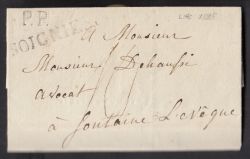 P.P.
SOIGNIES
A Monsieur
Monsieur Dehaussi
avocat
à fontaine L'evêque